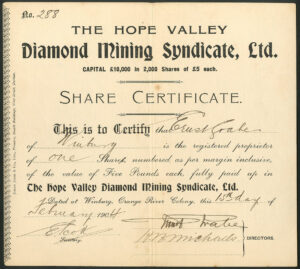 No. 288
THE HOPE VALLEY
Diamond Mining Syndicate, Ltd.
CAPITAL £10,000 in 2,000 Shares of £5 each.
SHARE CERTIFICATE.
This is to Certify that Ernst
of Winburg is the registered proprietor
of one Share, numbered as per margin inclusive,
of the value of Five Pounds each, fully paid up in
The Hope Valley Diamond Mining Syndicate, Ltd.
Dated at Winburg, Orange River Colony, this 15th day of
February 1904
Secretary.
DIRECTORS.